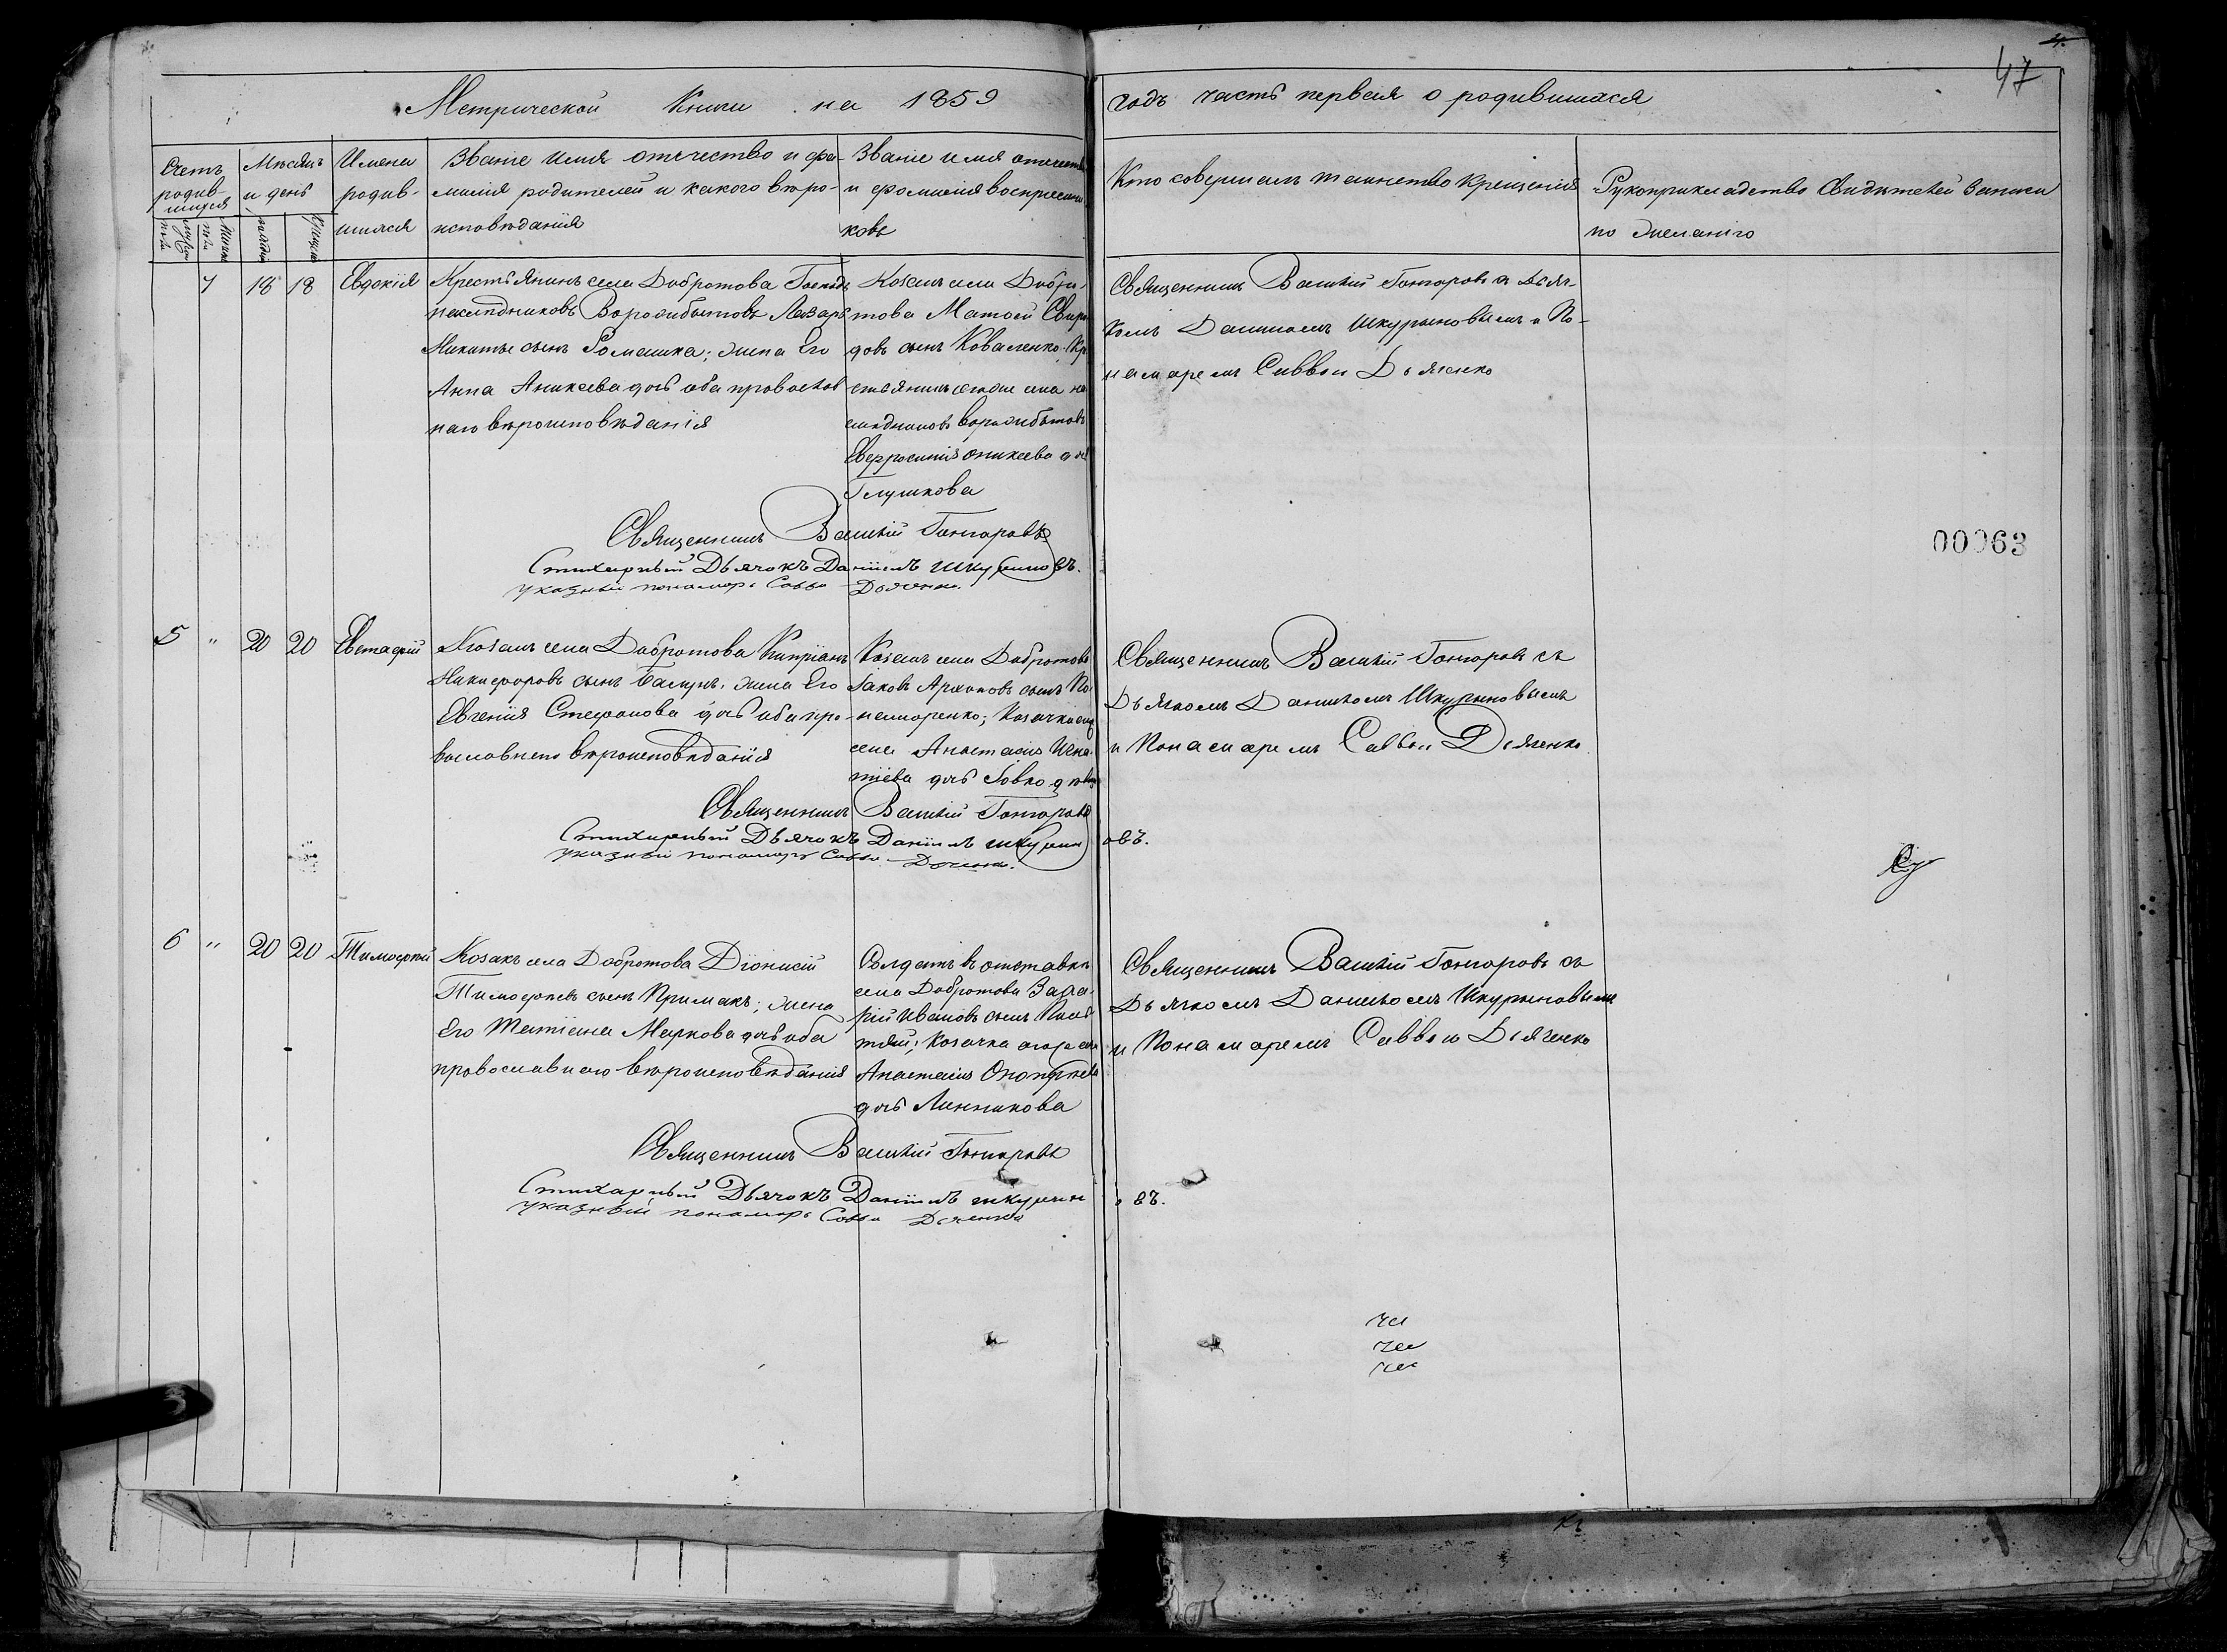 47
Метрической Книги на 1859 годъ часть первая о родившихся
Счетъ родив-шихся
Мѣсяцъ и день
Имена родив-шихся
Званіе имя отчество и фа-
милія родителей и какого вѣро-
исповѣданія
Званіе имя отчество
и фамилія воспріемни
ковъ
Кто совершалъ таинство крещенія
Рукоприкладство свидѣтелей записи
по желанію
7 18 18 Евдокія
Крестьянинъ села Добротова Господъ
наслѣдниковъ Ворожбытовъ Лазарь
Никитъ сынъ Ромашка; жена Его
Анна Аникеева дочь оба православ
наго вѣроисповѣданія
Козакъ села Добро-
това Матѳей Свири
довъ сынъ Коваленко; Кре
стьянинъ села на
слѣдниковъ Ворожбытовъ
Евфросинія Оникеева дочь
Глушкова
Священникъ Василій Гончаровъ и Дьяч-
комъ Даниломъ Шкурыновымъ и По-
намаремъ Саввою Дяченко
Священникъ Василій Гончаровъ
Стихарный Дьячокъ Даніилъ Шкуриновъ.
указный пономарь Савва Дяченко.
00063
5 " 20 20 Евстафій
Козакъ села Добротова Кипріанъ
Никифоровъ сынъ Бацунъ, жена Его
Евгенія Стефанова дочь оба пра-
вославнаго вѣроисповѣданія
Козакъ села Добротова
Іаковъ Архиповъ сынъ По
намаренко; Козачка
села Анастасія Игна
тіева дочь Говко дѣвица
Священникъ Василій Гончаровъ съ
Дьячкомъ Даниломъ Шкурыновымъ
и Понамаремъ Саввою Дяченко
Священникъ Василій Гончаровъ
Стихарный Дьячокъ Даніилъ Шкуриновъ.
указный пономарь Савва Дяченко.
6 " 20 20 Тимофей
Козакъ села Добротова Діонисій
Тимофеевъ сынъ Примакъ; жена
Его Татіана Маркова дочь оба
православнаго вѣроисповѣданія
Солдатъ въ отставкѣ
села Добротова Заха
рій Ивановъ сынъ
Козачка
Анастасія
дочь Линникова
Священникъ Василій Гончаровъ съ
Дьячкомъ Даниломъ Шкурыновымъ
и Понамаремъ Саввою Дяченко
Священникъ Василій Гончаровъ
Стихарный Дьячокъ Даніилъ Шкуриновъ.
указный пономарь Савва Дяченко